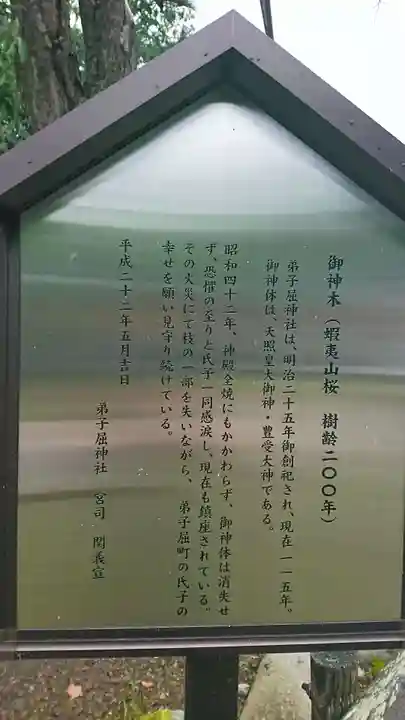 御神木(蝦夷山桜　樹齢二〇〇年)
弟子屈神社は、明治二十五年御創祀され、現在一一五年。
御神体は、天照皇大御神・豊受大神である。
昭和四十二年、神殿全焼にもかかわらず、御神体は消失せ
ず、恐懼の至りと氏子一同感涙し、現在も鎮座されている。
その火災にて枝の一部を失いながら、弟子屈町の氏子の
幸せを願い見守り続けている。
平成二十二年五月吉日
弟子屈神社　宮司　関義宣